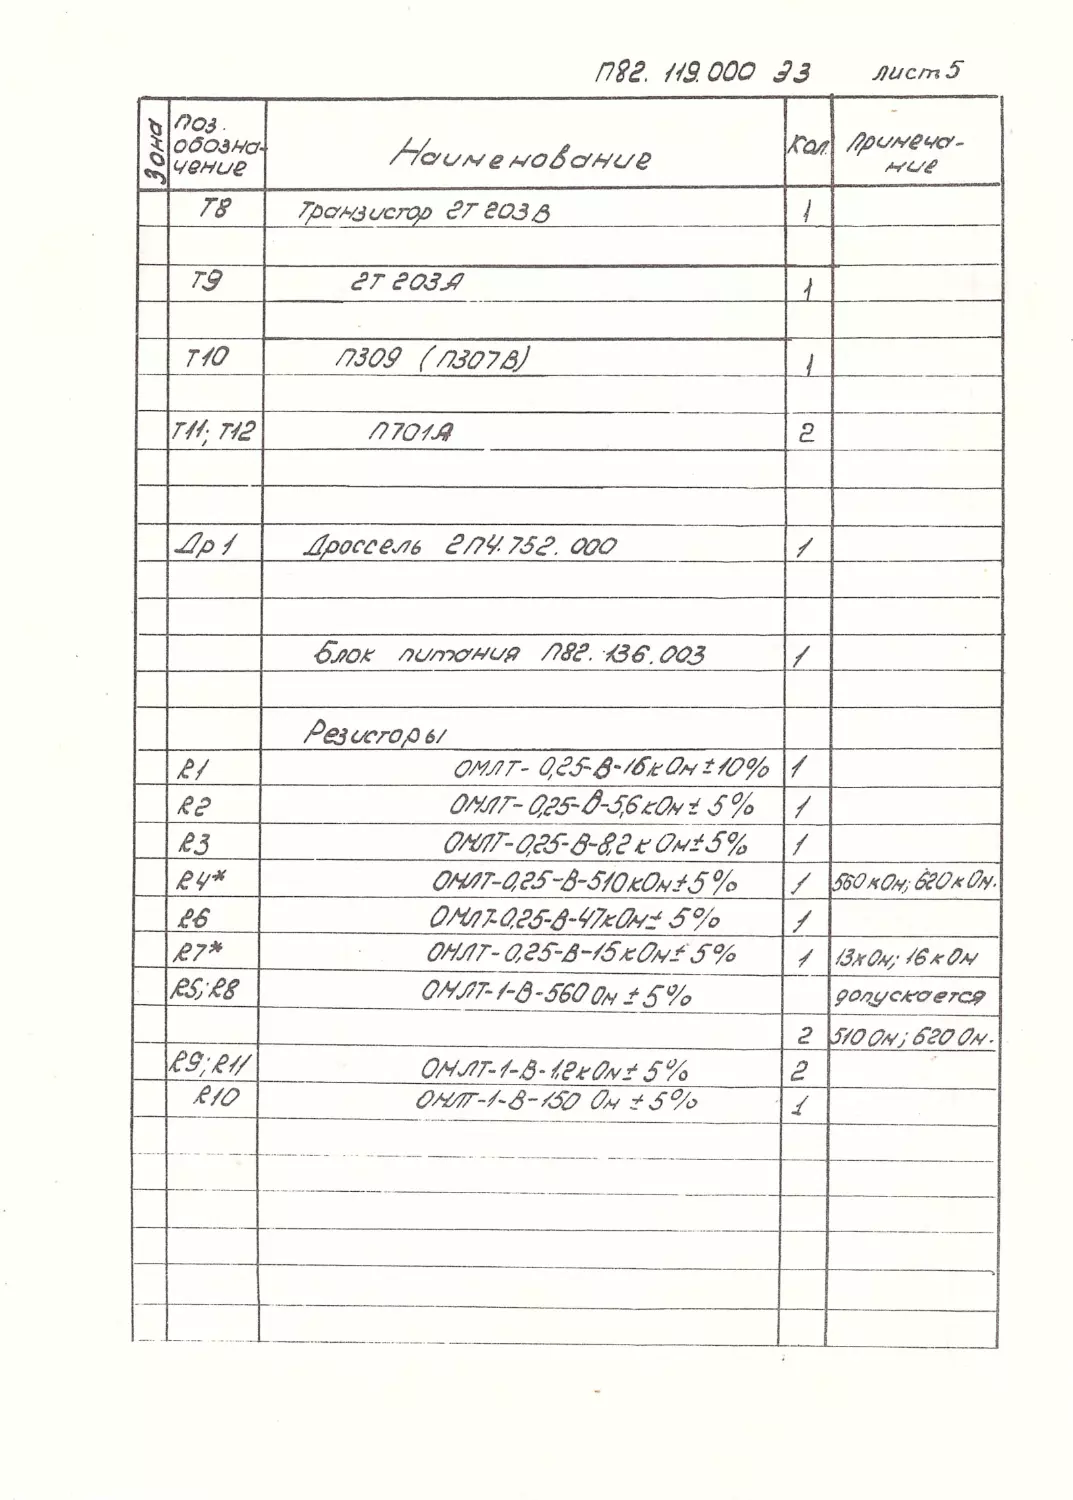 П82. 119.000 ЭЗ лист 5
Зона
поз. обозна- чение
Наименование
Кол.
Примеча- ние
Т8 Транзистор 2Т 203В 1
Т9 2Т 203А 1
Т10 П309 (П307В) 1
Т11; Т12 П701А 2
Др 1 Дроссель 2ПЧ. 752. 000 1
Блок питания П82. 136. 003 1
Резисторы
R1 ОМЛТ- 0,25-В-16кОм ±10% 1
R2 ОМЛТ- 0,25-В-5,6кОм ± 5% 1
R3 ОМЛТ-0,25-В-8,2 к Ом±5% 1
R4* ОМЛТ-0,25-В-510кОм±5% 1 560 кОм; 620к Ом.
R6 ОМЛТ-0,25-В-47кОм± 5% 1
R7* ОМЛТ- 0,25-В-15кОм± 5% 1 13кОм; 16 кОм
R5; R8 ОМЛТ-1-В-560 Ом ± 5% допускается
2 510 Ом; 620 Ом.
R9; R11 ОМЛТ-1-В-1,2кОм± 5% 2
R10 ОМЛТ-1-В-150 Ом ± 5% 1